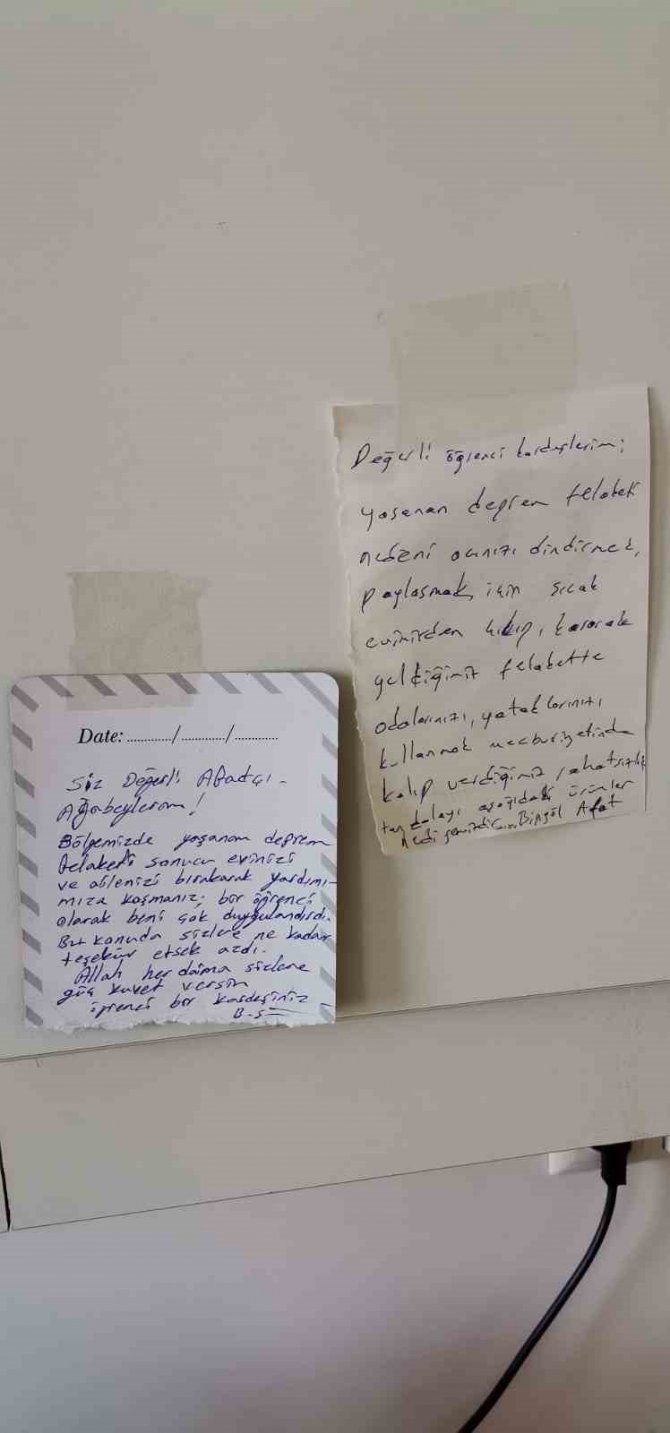 Değerli öğrenci kardeşlerim;
yaşanan deprem felaket
nedeni acınızı dindirmek,
paylaşmak için sıcak
evimizden çıkıp, koşarak
geldiğimiz felakette
odalarınızı, yataklarınızı
kullanmak mecburiyetinde
kalıp verdiğimiz rahatsızlık
tan dolayı aşağıdaki ürünler
Bingöl Afat
Date: ............/............/............
Siz Değerli Afadçı -
Ağabeylerim!
Bölgemizde yaşanan deprem
felaketi sonucu evinizi
ve ailenizi bırakarak yardımı-
mıza koşmanız; bir öğrenci
olarak beni çok duygulandırdı.
Bu konuda sizlere ne kadar
teşekür etsek azdı.
Allah her daima sizlere
güç kuvet versin
öğrenci bir kardeşiniz
B.S